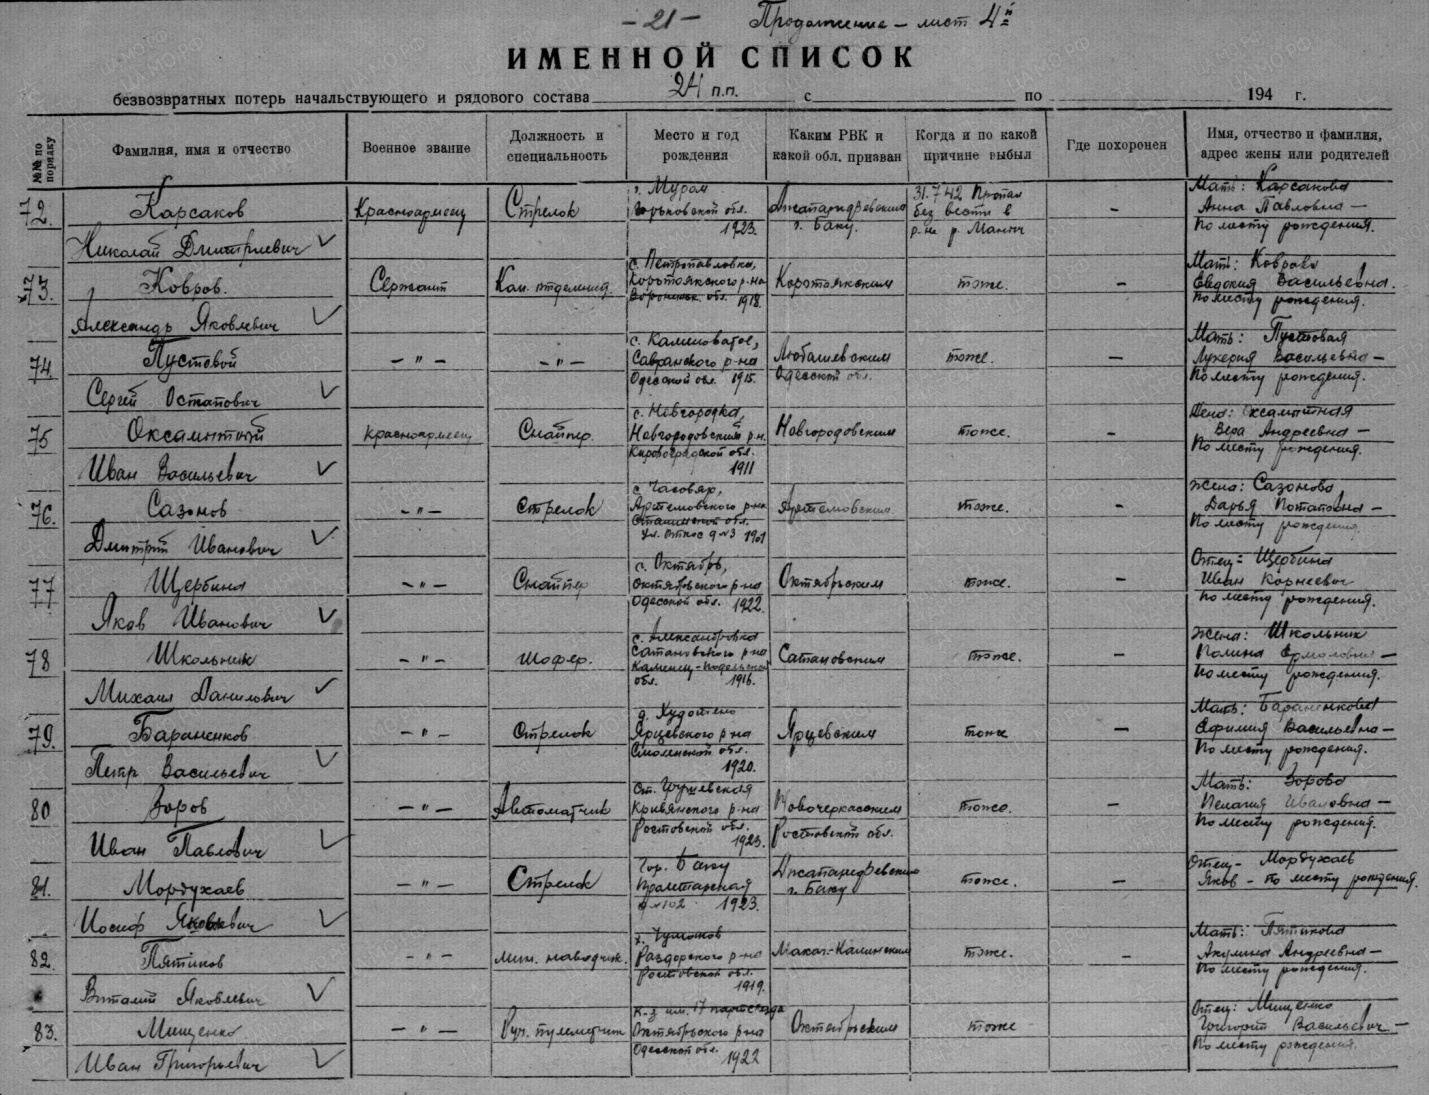 – 21 –
Продолжение – лист 4й
ИМЕННОЙ СПИСОК
безвозвратных потерь начальствующего и рядового состава 24 п.п. с по 194 г.
№№ по порядку
Фамилия, имя и отчество
Военное звание
Должность и специальность
Место и год рождения
Каким РВК и какой обл. призван
Когда и по какой причине выбыл
Где похоронен
Имя, отчество и фамилия, адрес жены или родителей
Карсаков Николай Дмитриевич
Красноармеец
Стрелок
г. Муром
Горьковской обл.
1923.
Джапаридзевским
г. Баку.
31.7.42 Пропал
без вести в
р-не р. Маныч
–
Мать: Карсакова
Анна Павловна –
По месту рождения.
73.
Ковров.
Александр Яковлевич
Сержант
Ком. отделения
с. Петропавловка,
Коротоякского р-на
Воронежск. обл.
1918.
Коротоякским
тоже.
–
Мать: Коврова
Евдокия Васильевна.
По месту рождения.
74.
Пустовой
Сергей Остапович
– " –
– " –
с. Каменоватое,
Савранского р-на
Одесской обл. 1915.
Любашевским
Одесской обл.
тоже.
–
Мать: Пустовая
Лукерия Васильевна –
По месту рождения.
75
Оксамитный
Иван Васильевич
Красноармеец
Снайпер.
с. Новгородка,
Новгородовский р-н.
Кировоградской обл.
1911
Новгородовским
тоже.
–
Жена: Оксамитная
Вера Андреевна –
По месту рождения.
76.
Сазонов
Дмитрий Иванович
– " –
Стрелок
с. Часовяр,
Артемовского р-на
Сталинской обл.
ул. Откос д №3 1901
Артемовским
тоже.
–
Жена: Сазонова
Дарья Потаповна –
По месту рождения
77
Щербина
Яков Иванович
– " –
Снайпер
с. Октябрь,
Октябрьского р-на
Одесской обл. 1922.
Октябрьским
тоже.
–
Отец – Щербина
Иван Корнеевич
По месту рождения.
78
Школьник
Михаил Данилович
– " –
Шофер.
с. Александровка
Сатановского р-на
Каменец-Подольской
обл. 1916.
Сатановским
тоже.
–
Жена: Школьник
Полина Ермоловна –
По месту рождения.
79.
Бараненков
Петр Васильевич
– " –
Стрелок
Ярцевского р-на
Смоленской обл.
1920.
Ярцевским
тоже
–
Мать: Бараненкова
Ефимия Васильевна –
По месту рождения.
80
Зоров
Иван Павлович
– " –
Автоматчик
ст. Грушевская
Кривянского р-на
Ростовской обл.
1923.
Новочеркасским
Ростовской обл.
тоже.
–
Мать: Зорова
Пелагия Ивановна –
По месту рождения.
81.
Мордухаев
Иосиф Яковлевич
– " –
Стрелок
Гор. Баку
Пролетарская
д №102 1923.
Джапаридзевским
г. Баку
тоже.
–
Отец – Мордухаев
Яков – по месту рождения.
82.
Пятиков
Виталий Яковлевич
– " –
Мин. наводчик.
Раздорского р-на
Ростовской обл.
1919.
тоже.
–
Мать: Пятикова
Акулина Андреевна –
По месту рождения.
83.
Мищенко
Иван Григорьевич
– " –
Руч. пулеметчик
к-з им. 17 партсъезда
Октябрьского р-на
Одесской обл.
1922
Октябрьским
тоже
–
Отец: Мищенко
Григорий Васильевич –
По месту рождения.